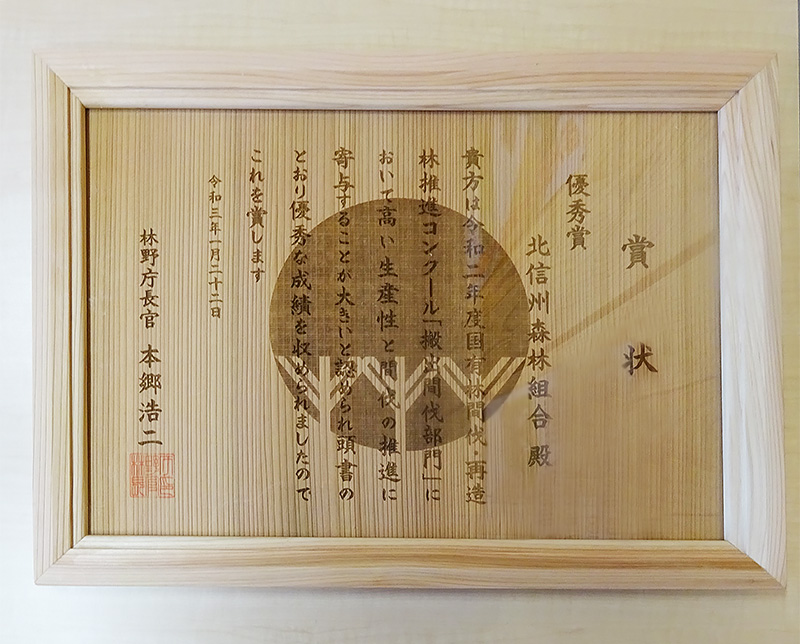 賞状
優秀賞
北信州森林組合 殿
貴方は令和二年度国有林間伐・再造
林推進コンクール「搬出間伐部門」に
おいて高い生産性と間伐の推進に
寄与することが大きいと認められ頭書の
とおり優秀な成績を収められましたので
これを賞します
令和三年一月二十二日
林野庁長官 本郷浩二